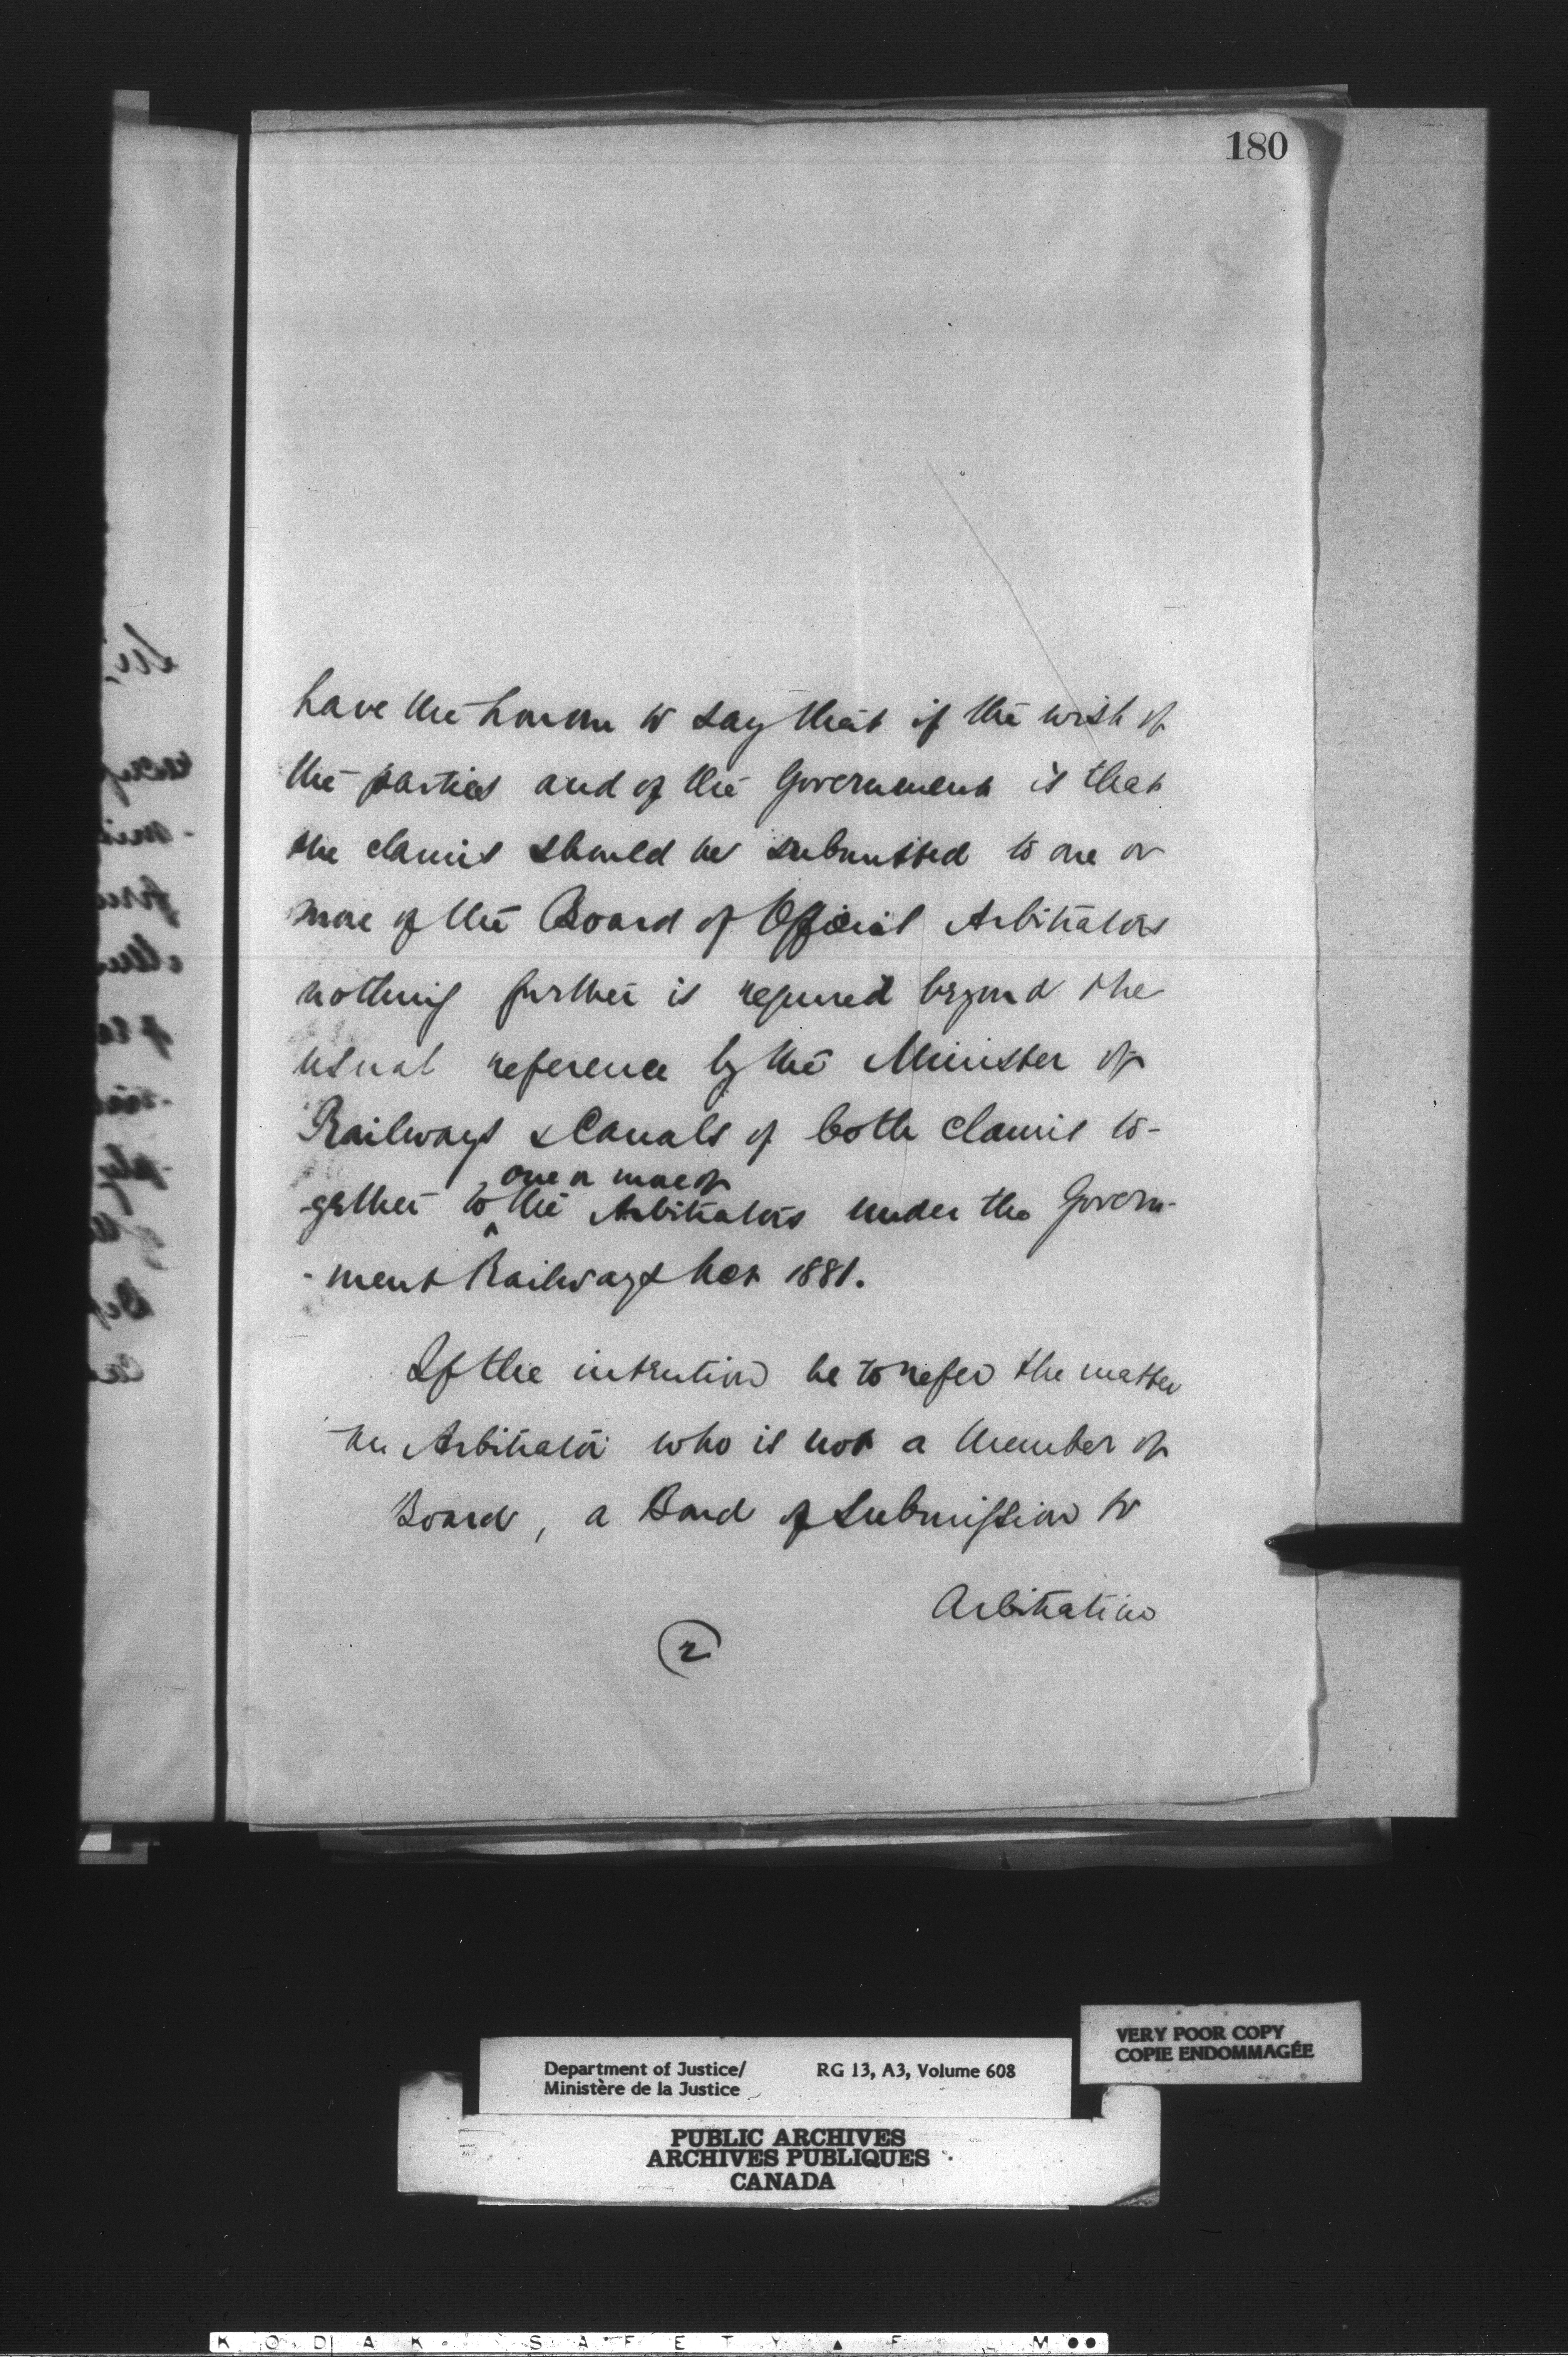 180
have the honour to say that if the wish of
the parties and of the Government is that
the claims should be submitted to one or
more of the Board of Official Arbitrators
nothing further is required beyond the
usual reference by the Minister of
Railways & Canals of both claims to-
one or more of
-gether to the Arbitrators under the Govern-
-ment Railways Act 1881.
If the intention be to refer the matter
Arbitrator who is not a member of
Board, a Bond of Submission to
Arbitration
2
Department of Justice/
Ministère de la Justice
RG 13, A3, Volume 608
VERY POOR COPY
COPIE ENDOMMAGÉE
PUBLIC ARCHIVES
ARCHIVES PUBLIQUES
CANADA
KODAK SAFETY